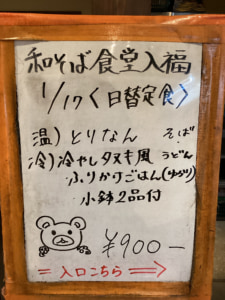 和そば食堂入福
1/17く日替定食〉
温)とりなん そば
冷)冷やしタヌキ風 うどん
ふりかけごはん(ゆかり)
小鉢2品付
¥900-
=入口こちら⇒